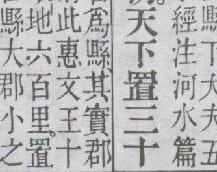 縣下大夫五
經注河水篇
天下置三十
爲縣其實郡
此惠文王十
地六百里置
縣大郡小之